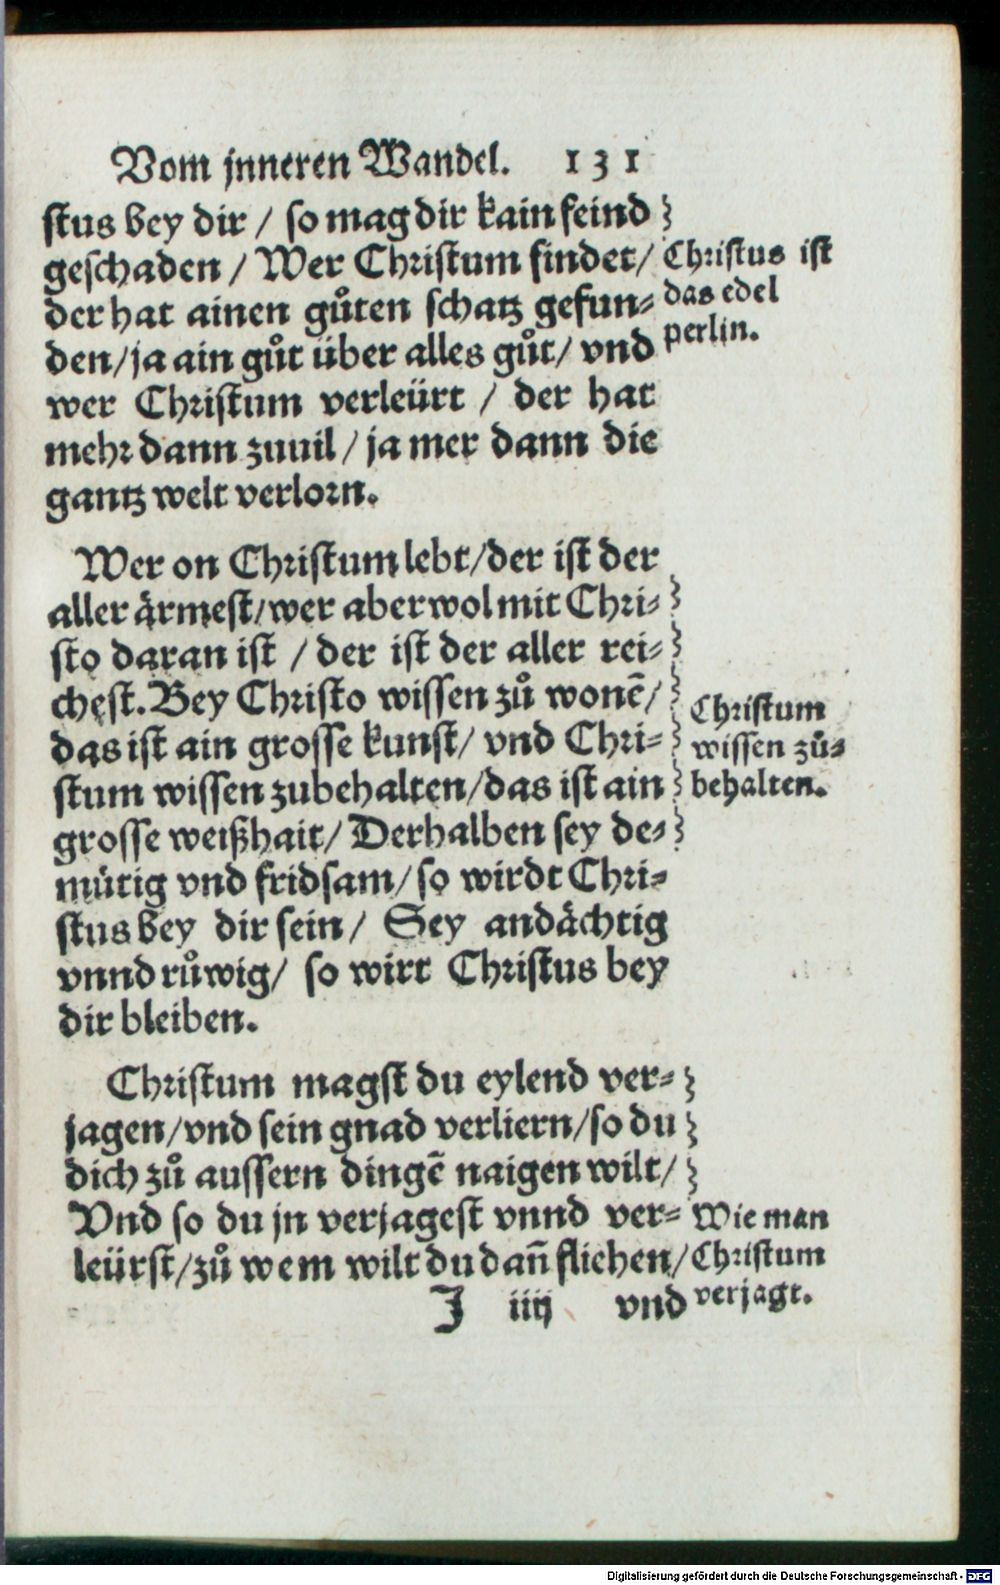 Vom jnneren Wandel. 131
stus bey dir / so mag dir kain feind
geschaden / Wer Christum findet /
der hat ainen gůten schatz gefun⸗
den / ja ain gůt über alles gůt / vnd
wer Christum verleürt / der hat
mehr dann zuuil / ja mer dann die
gantz welt verlorn.
Christus ist
das edel
perlin.
Wer on Christum lebt / der ist der
aller ärmest / wer aber wol mit Chri⸗
sto daran ist / der ist der aller rei⸗
chest. Bey Christo wissen zů wonē /
das ist ain grosse kunst / vnd Chri⸗
stum wissen zubehalten / das ist ain
grosse weißhait / Derhalben sey de⸗
mütig vnd fridsam / so wirdt Chri⸗
stus bey dir sein / Sey andächtig
vnnd růwig / so wirt Christus bey
dir bleiben.
Christum
wissen zů⸗
behalten.
Christum magst du eylend ver⸗
jagen / vnd sein gnad verliern / so du
dich zů aussern dingē naigen wilt /
Vnd so du jn verjagest vnnd ver⸗
leürst / zů wem wilt du dañ fliehen /
Wie man
Christum
verjagt.
J iiij vnd
Digitalisierung gefördert durch die Deutsche Forschungsgemeinschaft - DFG